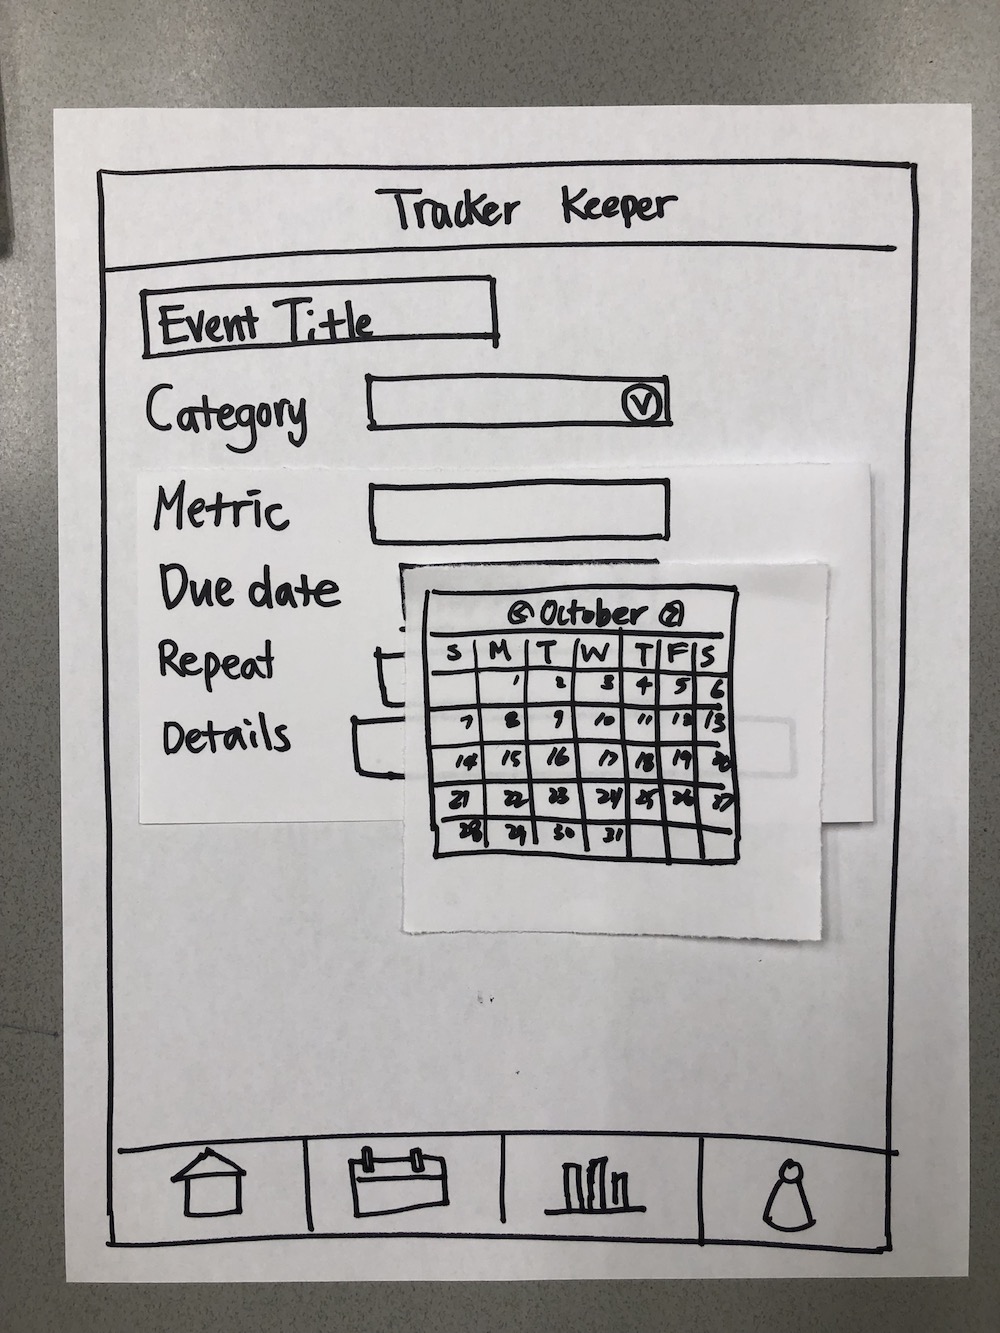 Tracker Keeper
Event Title
Category
Metric
Due date
Repeat
Details
October
S M T W T F S
1 2 3 4 5 6
7 8 9 10 11 12 13
14 15 16 17 18 19 20
21 22 23 24 25 26 27
28 29 30 31